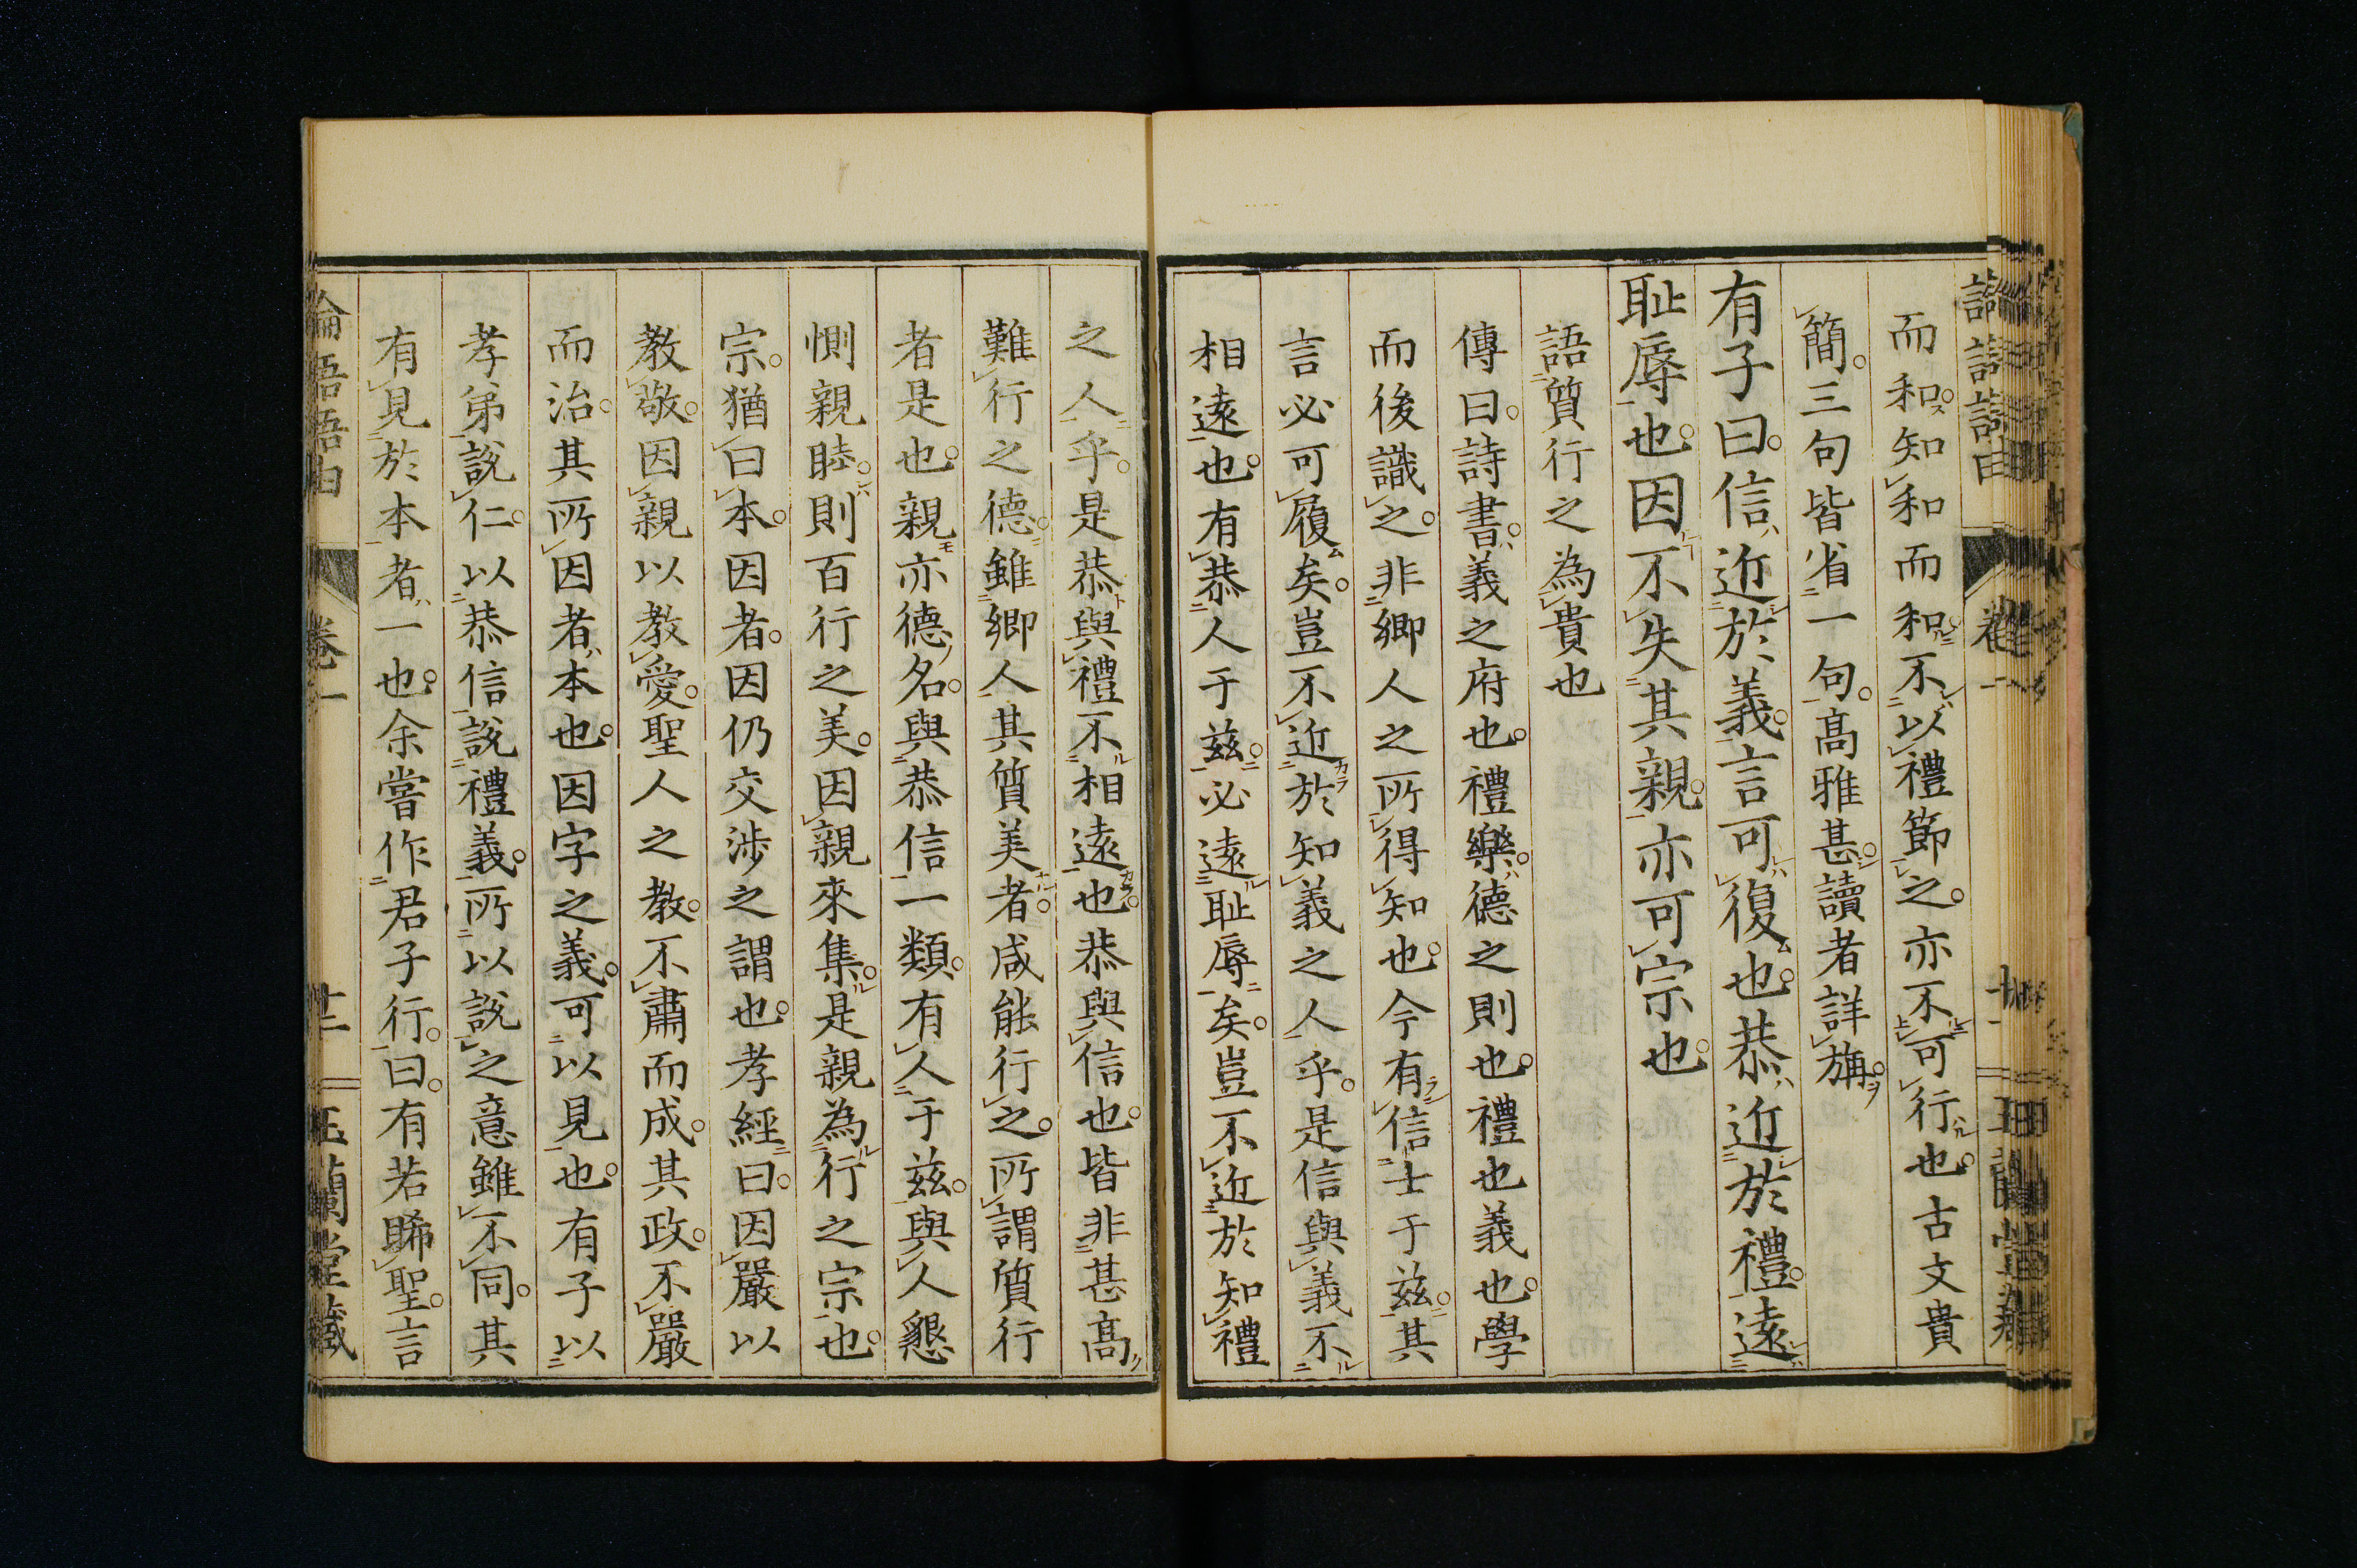 而和。知和而和。不以禮節之。亦不可行也。古文貴
簡。三句皆省一句。高雅甚。讀者詳旃。
有子曰。信近於義。言可復也。恭近於禮。遠
耻辱也。因不失其親。亦可宗也。
語質行之為貴也
傳曰。詩書。義之府也。禮樂。德之則也。禮也義也。學
而後識之。非鄉人之所得知也。今有信士于茲。其
言必可履矣。豈不近於知義之人乎。是信與義不
相遠也。有恭人于茲。必遠耻辱矣。豈不近於知禮
之人乎。是恭與禮不相遠也。恭與信也。皆非甚高
難行之德。雖鄉人其質美者。咸能行之。所謂質行
者是也。親亦德名。與恭信一類。有人于茲。與人懇
惻親睦。則百行之美。因親來集。是親為行之宗也。
宗。猶曰本。因者。因仍交涉之謂也。孝經曰。因嚴以
教敬。因親以教愛。聖人之教。不肅而成。其政。不嚴
而治。其所因者本也。因字之義。可以見也。有子以
孝弟說仁。以恭信說禮義。所以說之意雖不同。其
有見於本者一也。余嘗作君子行。曰。有若睎聖。言
論語語由 卷一 十二 玉蘭堂藏